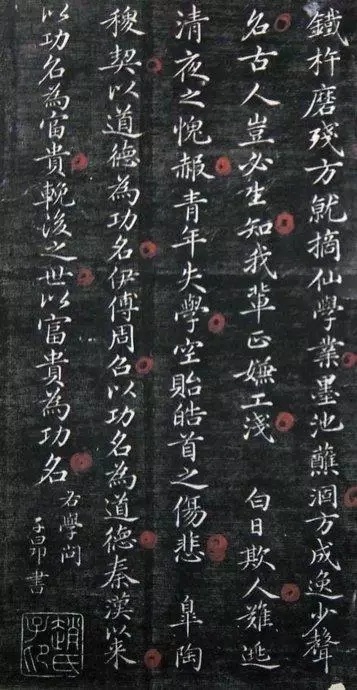 鐵杵磨殘方就摘仙學業墨池蘸涸方成逸少聲
名古人豈必生知我輩正嫌工淺 白日欺人難逃
清夜之愧赧青年失學空貽皓首之傷悲 皐陶
稷契以道德為功名伊傅周召以功名為道德秦漢以来
以功名為富貴輓後之世以富貴為功名
右學問
子昂書
趙氏子昂